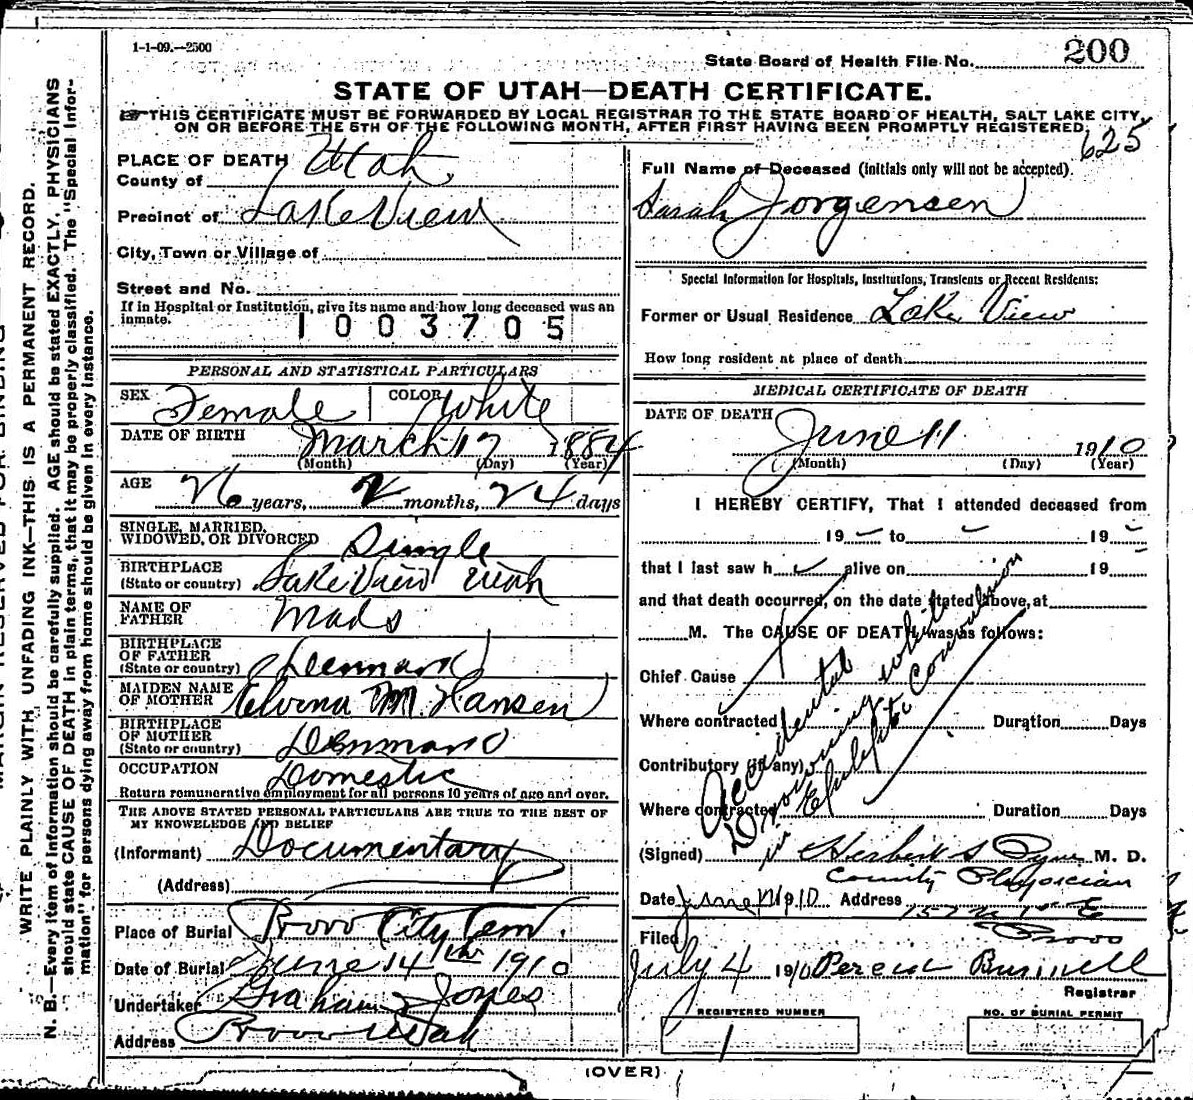 1-1-09.—2500
State Board of Health File No. 200
STATE OF UTAH—DEATH CERTIFICATE.
THIS CERTIFICATE MUST BE FORWARDED BY LOCAL REGISTRAR TO THE STATE BOARD OF HEALTH, SALT LAKE CITY,
ON OR BEFORE THE 5TH OF THE FOLLOWING MONTH, AFTER FIRST HAVING BEEN PROMPTLY REGISTERED.
625
WRITE PLAINLY WITH UNFADING INK—THIS IS A PERMANENT RECORD.
N. B.—Every item of information should be carefully supplied. AGE should be stated EXACTLY. PHYSICIANS
should state CAUSE OF DEATH in plain terms, that it may be properly classified. The "Special Infor-
mation" for persons dying away from home should be given in every instance.
PLACE OF DEATH
County of Utah
Precinct of Lake View
City, Town or Village of
Street and No.
If in Hospital or Institution, give its name and how long deceased was an
inmate.
1003705
PERSONAL AND STATISTICAL PARTICULARS
SEX Female COLOR White
DATE OF BIRTH March 17 1884
(Month) (Day) (Year)
AGE 26 years, 2 months, 24 days
SINGLE, MARRIED,
WIDOWED, OR DIVORCED Single
BIRTHPLACE
(State or country) Lake View Utah
NAME OF
FATHER Mads
BIRTHPLACE
OF FATHER
(State or country) Denmark
MAIDEN NAME
OF MOTHER Elvena M. Hansen
BIRTHPLACE
OF MOTHER
(State or country) Denmark
OCCUPATION Domestic
Return remunerative employment for all persons 10 years of age and over.
THE ABOVE STATED PERSONAL PARTICULARS ARE TRUE TO THE BEST OF
MY KNOWLEDGE AND BELIEF
(Informant) Documentary
(Address)
Place of Burial Provo City Cem.
Date of Burial June 14th 1910
Undertaker Graham & Jones
Address Provo Utah
Full Name of Deceased (initials only will not be accepted).
Sarah Jorgensen
Special Information for Hospitals, Institutions, Transients or Recent Residents:
Former or Usual Residence Lake View
How long resident at place of death
MEDICAL CERTIFICATE OF DEATH
DATE OF DEATH June 11 1910
(Month) (Day) (Year)
I HEREBY CERTIFY, That I attended deceased from
19 to 19
that I last saw h alive on 19
and that death occurred, on the date stated above, at
M. The CAUSE OF DEATH was as follows:
Chief Cause
Where contracted Duration Days
Contributory (if any)
Where contracted Duration Days
Accidental
Drowning while
in Epileptic Convulsion
(Signed) Herbert S Pyne M. D.
County Physician
Date June 11 1910 Address 157 N 1st E
Provo
Filed
July 4 1910 Bunnell
Registrar
REGISTERED NUMBER
1
NO. OF BURIAL PERMIT
(OVER)